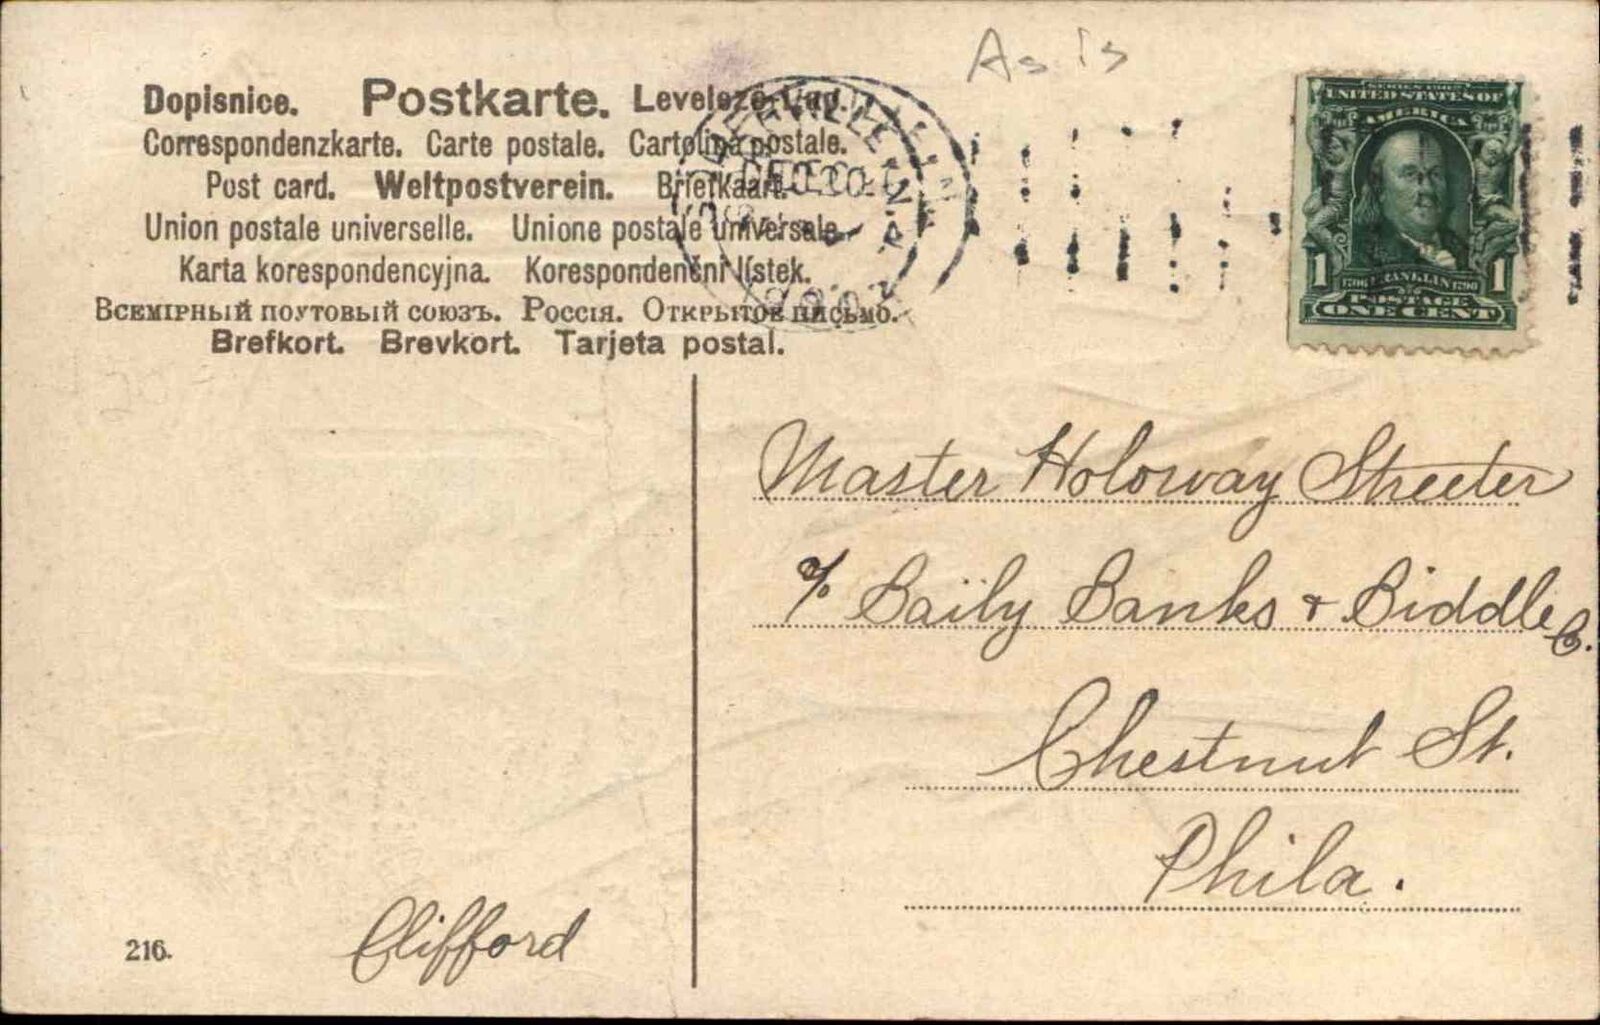 As is
Dopisnice. Postkarte. Levelező-Lap.
Correspondenzkarte. Carte postale. Cartolina postale.
Post card. Weltpostverein. Briefkaart.
Union postale universelle. Unione postale universale.
Karta korespondencyjna. Korespondenční lístek.
Всемірный почтовый союзъ. Россія. Открытое письмо.
Brefkort. Brevkort. Tarjeta postal.
DEC 20
SERIES 1902
UNITED STATES OF
AMERICA
1 1
1706 FRANKLIN 1790
POSTAGE
ONE CENT
Master Holoway Streeter
c/o Baily Banks + Biddle Co.
Chestnut St.
Phila.
Clifford
216.